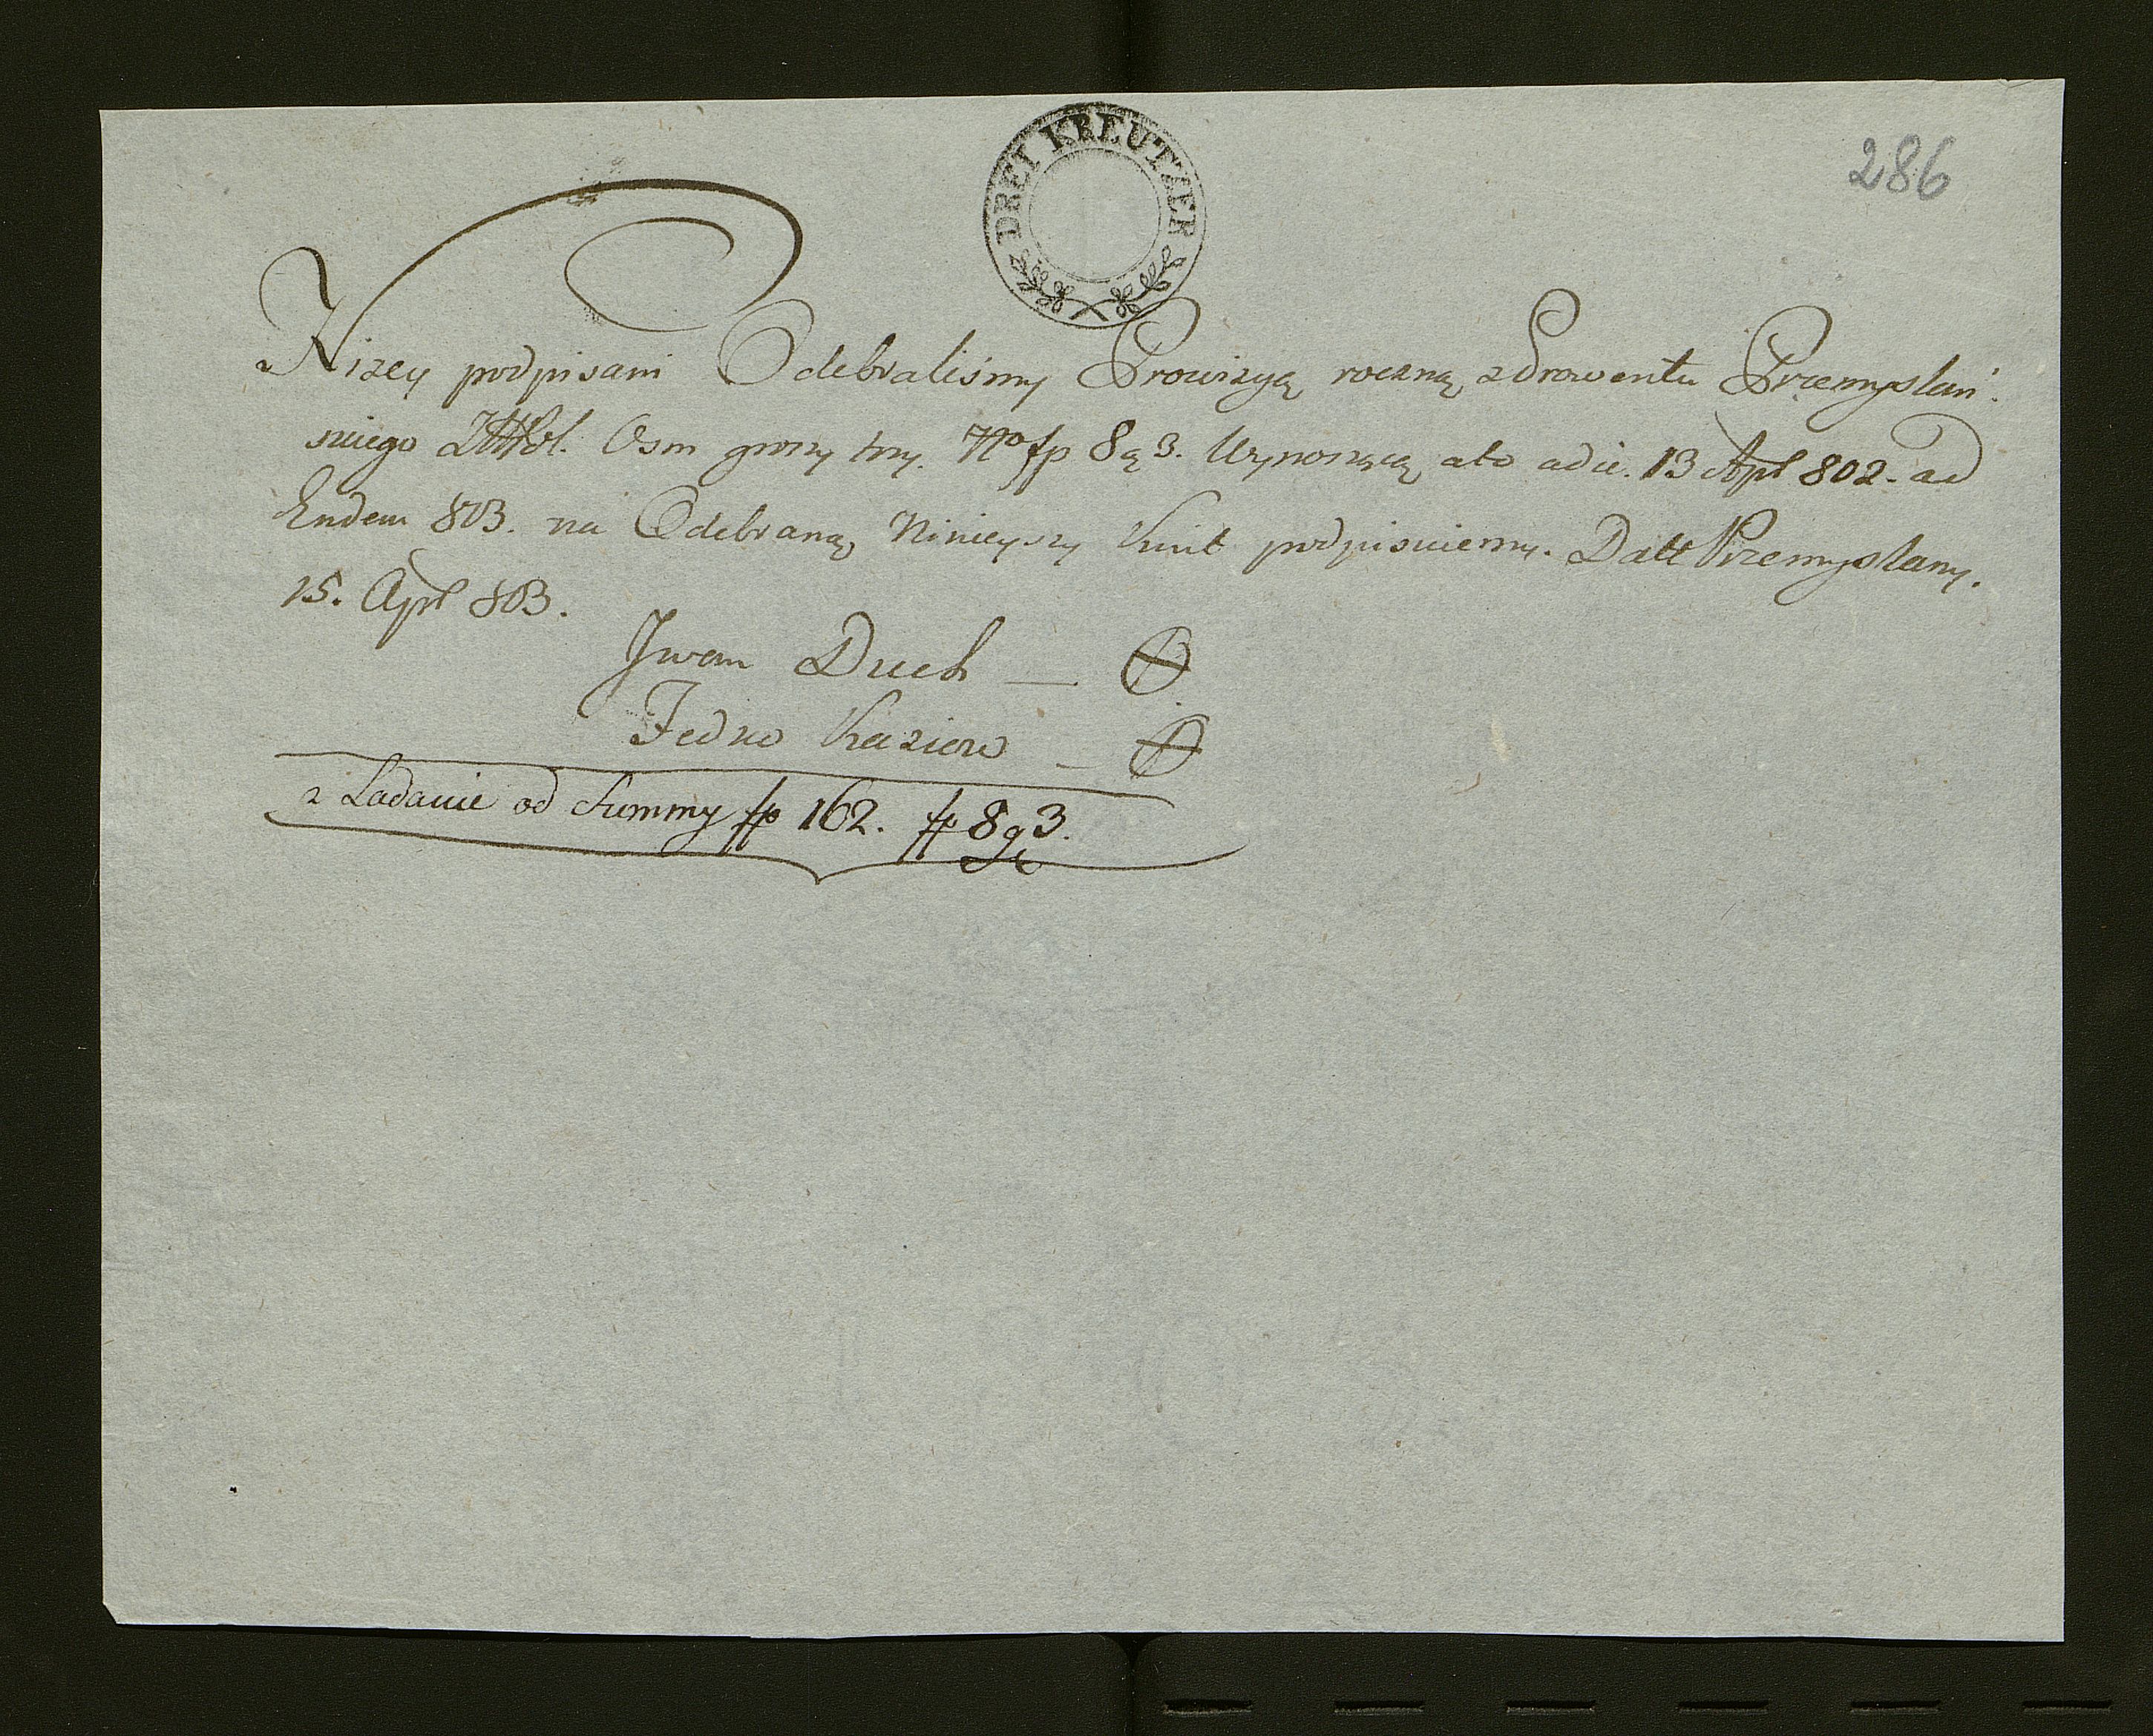 DREI KREUTZER
286
Niżey podpisani Odebraliśmy Prowizyą roczną z Prowentu Przemyslań
skiego Osm groszy trzy. Nro fp 8 g 3. Wynoszącą, a to a die. 13 Apl 802. ad
Eudem 803. na Odebraną Ninieyszy Kwit podpisuiemy. Datt Przemyslany.
15. Apl 803.
Jwan Duch —
Fedko Kaziow —
z Ladanie od Summy fp 162. fp 8 g 3.